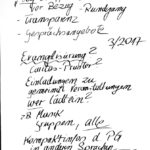 vor Bezug - Rundgang
Transparenz
Gesprächsangebote
3/2017
Caritas-
Einladungen zu
gemeinst. Veranstaltungen
wer läd ein?
z.B. Musik
Gruppen, alle
Kompaktinfos d PG
in anderen Sprachen